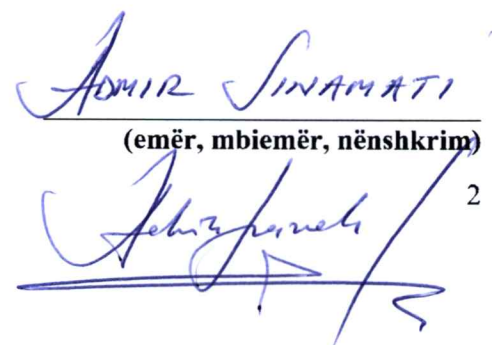 ADMIR SINAMATI
(emër, mbiemër, nënshkrim)
2